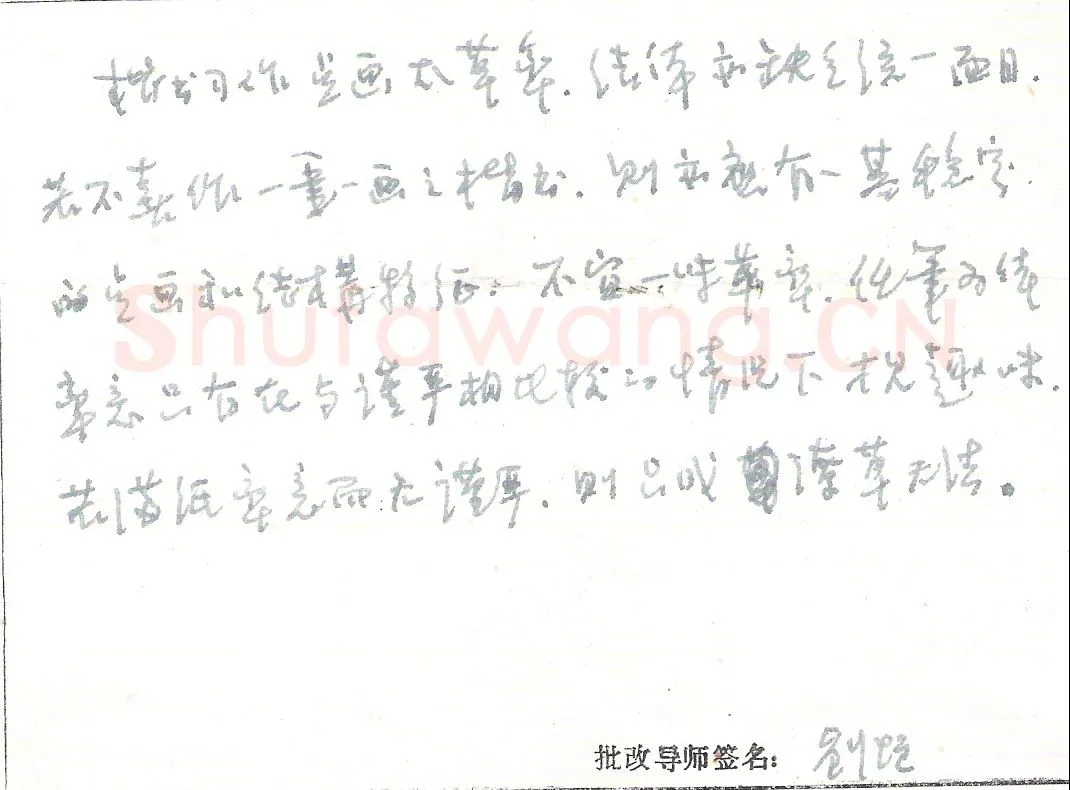 楷书习作点画太草率.结体亦缺乏统一面目.
若不喜作一笔一画之楷书.则亦应有一基稳字
的点画和结构特征.不宜一味草率.任笔为体
率意只有在与谨严相比较的情况下才见趣味.
若满纸率意而无谨严.则只成潦草无法。
批改导师签名: 刘恒
Shufawang.CN